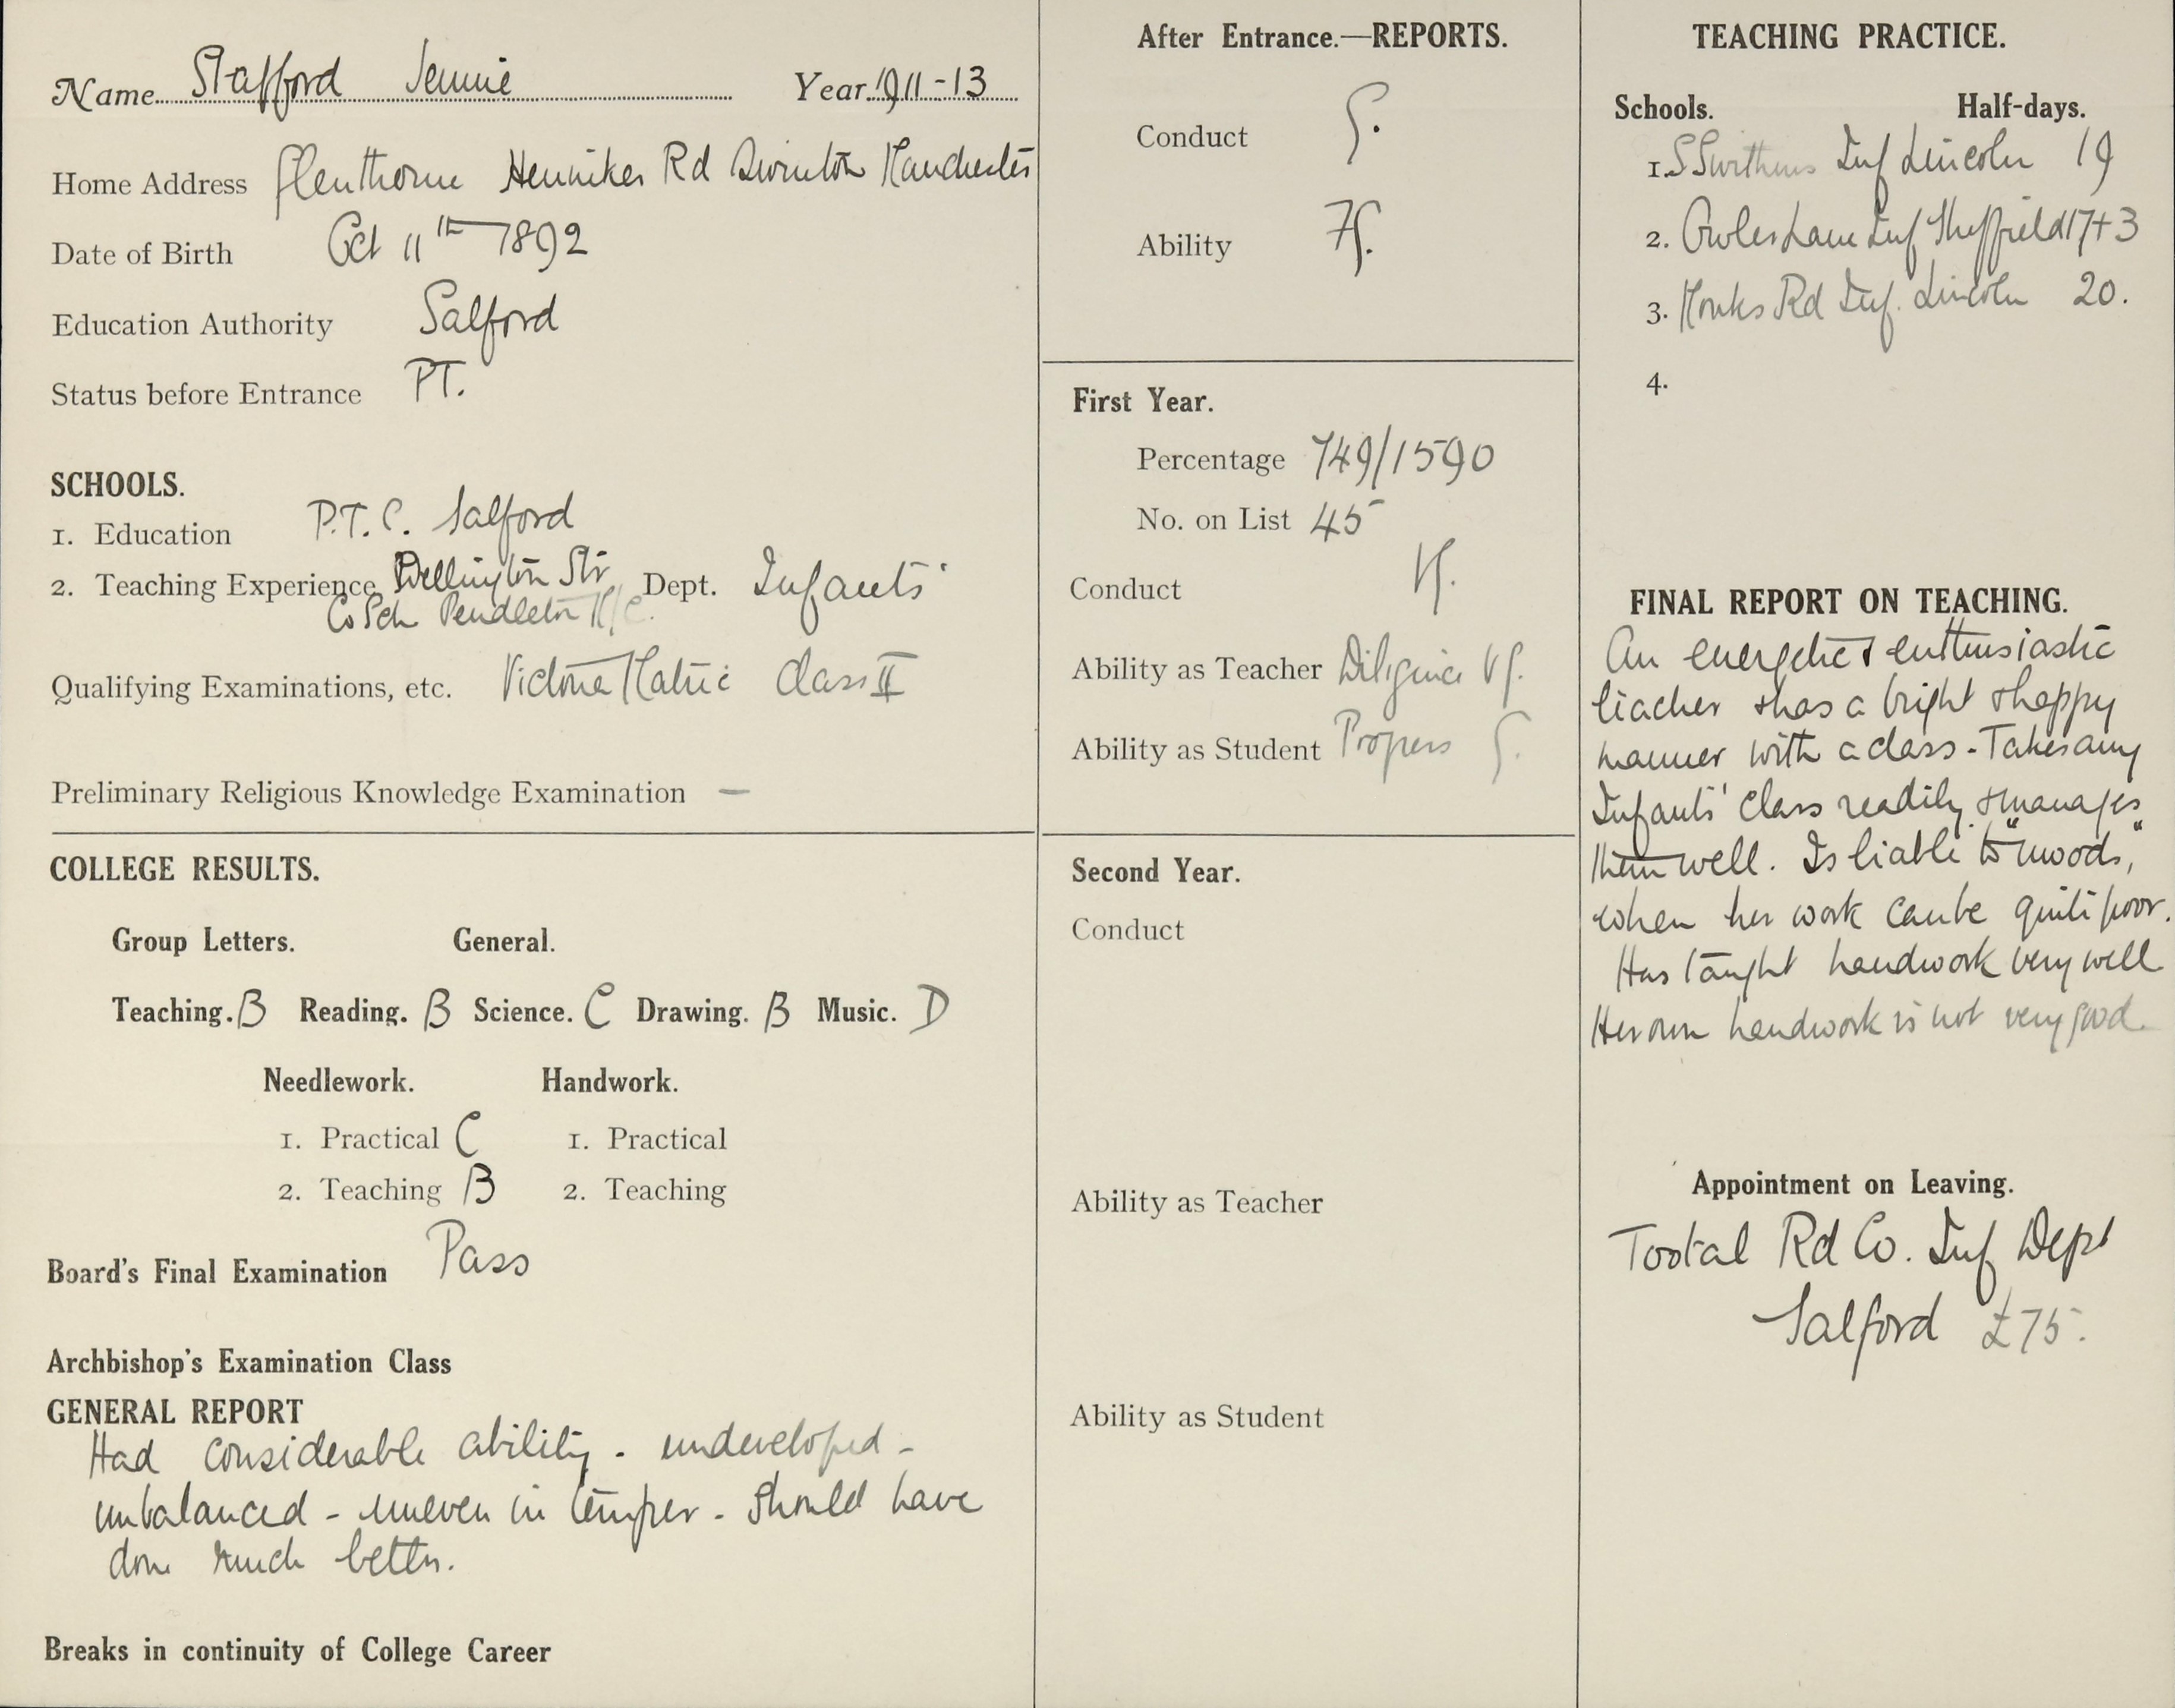 Name Stafford Jennie Year 1911-13
Home Address Glenthorne Henniker Rd Swinton Manchester
Date of Birth Oct 11th 1892
Education Authority Salford
Status before Entrance PT.
SCHOOLS.
1. Education P.T.C. Salford
2. Teaching Experience Wellington Str Dept. Infants'
Co Sch Pendleton
Qualifying Examinations, etc. Victoria Matric Class II
Preliminary Religious Knowledge Examination —
COLLEGE RESULTS.
Group Letters. General.
Teaching. B Reading. B Science. C Drawing. B Music. D
Needlework. Handwork.
1. Practical C 1. Practical
2. Teaching B 2. Teaching
Board's Final Examination Pass
Archbishop's Examination Class
GENERAL REPORT
Had considerable ability - undeveloped -
unbalanced - uneven in temper - should have
done much better.
Breaks in continuity of College Career
After Entrance.—REPORTS.
Conduct G.
Ability FG.
First Year.
Percentage 749/1590
No. on List 45
Conduct VG.
Ability as Teacher Diligence VG.
Ability as Student Progress G.
Second Year.
Conduct
Ability as Teacher
Ability as Student
TEACHING PRACTICE.
Schools. Half-days.
1. S Swithins Inf Lincoln 19
2. Owler Lane Inf Sheffield 17+3
3. Monks Rd Inf. Lincoln 20.
4.
FINAL REPORT ON TEACHING.
An energetic & enthusiastic
teacher & has a bright & happy
manner with a class - Takes any
Infants' class readily & manages
them well. Is liable to "moods,"
when her work can be quite poor.
Has taught handwork very well
Her own handwork is not very good.
Appointment on Leaving.
Tootal Rd Co. Inf Dept
Salford £75.